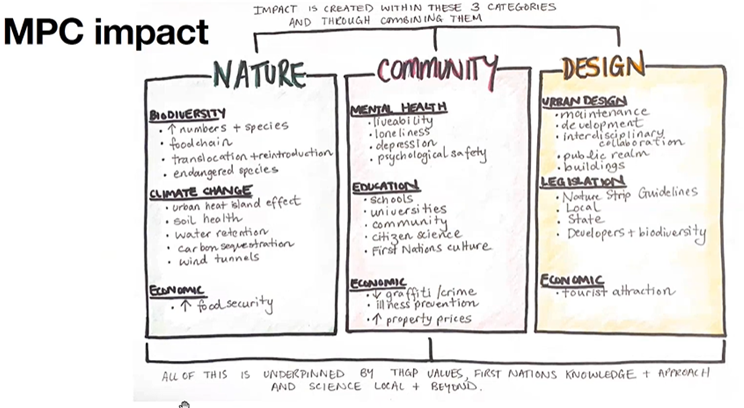 MPC impact
IMPACT IS CREATED WITHIN THESE 3 CATEGORIES
AND THROUGH COMBINING THEM
NATURE
BIODIVERSITY
• ↑ numbers + species
• foodchain
• translocation + reintroduction
• endangered species
CLIMATE CHANGE
• urban heat island effect
• soil health
• water retention
• carbon sequestration
• wind tunnels
ECONOMIC
• ↑ food security
COMMUNITY
MENTAL HEALTH
• liveability
• loneliness
• depression
• psychological safety
EDUCATION
• schools
• universities
• community
• citizen science
• First Nations culture
ECONOMIC
• ↓ graffiti / crime
• illness prevention
• ↑ property prices
DESIGN
URBAN DESIGN
• maintenance
• development
• interdisciplinary
collaboration
• public realm
• buildings
LEGISLATION
• Nature Strip Guidelines
• Local
• State
• Developers + biodiversity
ECONOMIC
• tourist attraction
ALL OF THIS IS UNDERPINNED BY THGP VALUES, FIRST NATIONS KNOWLEDGE + APPROACH
AND SCIENCE LOCAL + BEYOND.